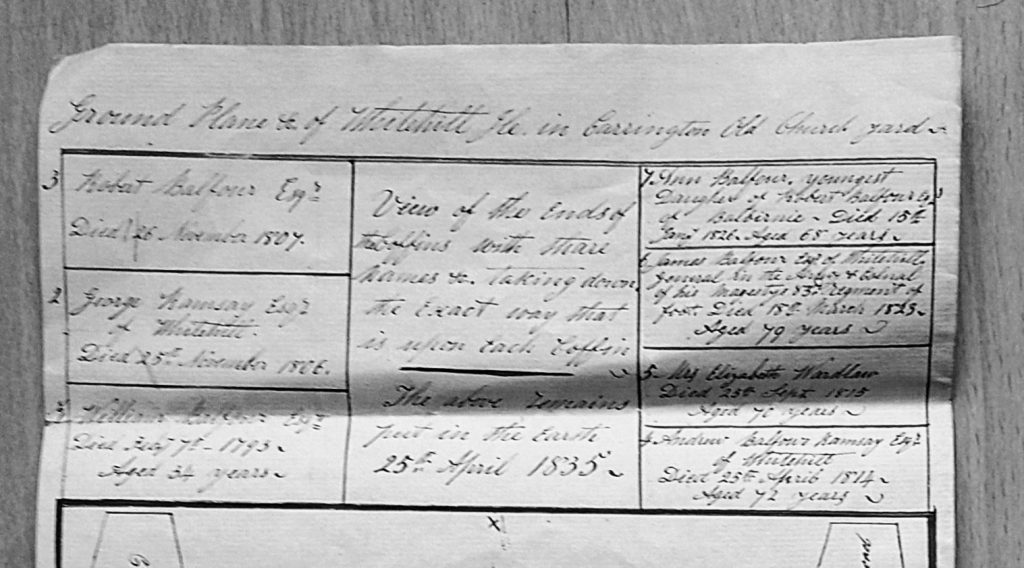 Ground Plane &c of Whitehill Ile. in Carrington Old Church yard
3 Robert Balfour Esqr
Died 26 November 1807.
2 George Ramsay Esqr
of Whitehill.
Died 25th November 1806.
William Balfour Esqr
Died Feby 7th - 1793
Aged 34 years
View of the Ends of
the Coffins with thare
names &c. Taking down
the Exact way that
is upon Each Coffin
The above remains
put in the Earth
25th April 1835
7. Ann Balfour, youngest
Daughter of Robert Balfour Esqr
of Balbirnie - Died 15th
Jany 1826. Aged 65 years
6. James Balfour Esqr of Whitehill
General In the Army & Colonel
of his Majestys 83d Regiment of
foot. Died 18th March 1823
Aged 79 years
5. Mrs Elizabeth Wardlaw
Died 25th Sept 1815
Aged 70 years
4. Andrew Balfour Ramsay Esqr
of Whitehill
Died 25th April 1814
Aged 72 years
x